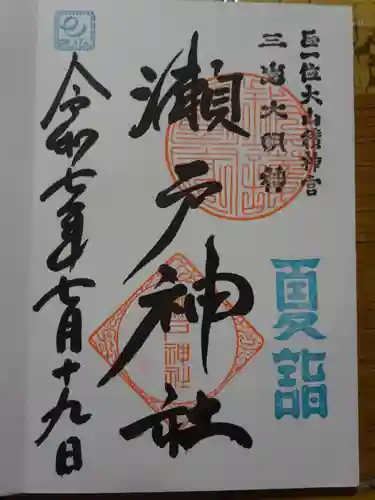 正一位大山積神宮
三島大明神
夏詣
瀬戸神社
令和七年七月十九日